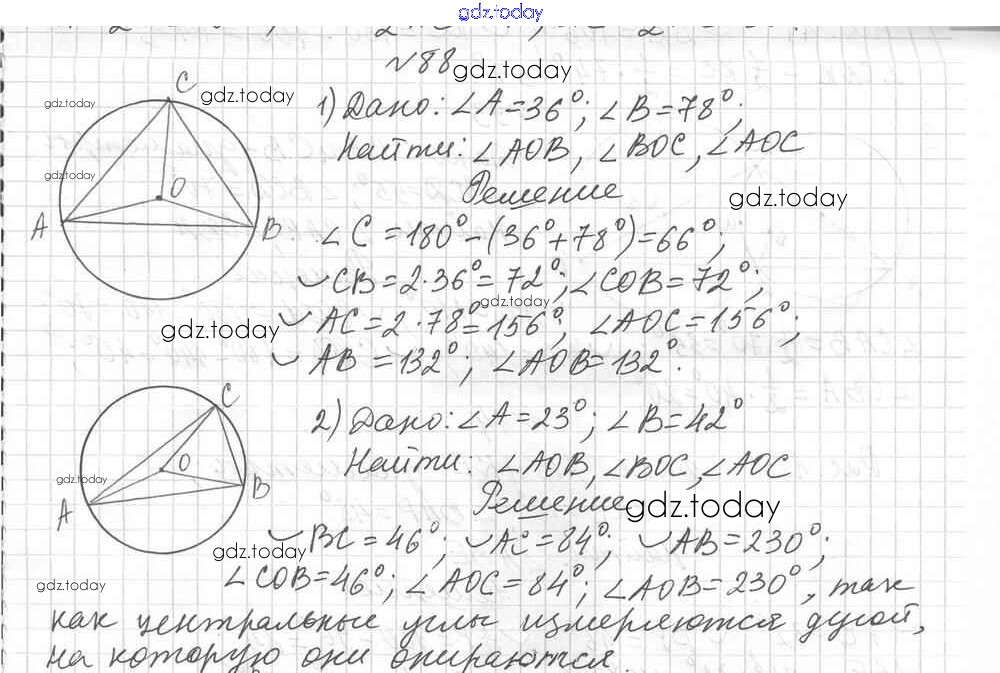 gdz.today
№88
gdz.today
C
gdz.today
gdz.today
1) Дано: ∠A=36°; ∠B=78°;
Найти: ∠AOB, ∠BOC, ∠AOC
gdz.today
O
Решение
gdz.today
A
B
∠C=180°-(36°+78°)=66°;
◡CB=2·36°=72°; ∠COB=72°;
gdz.today
gdz.today
◡AC=2·78°=156°; ∠AOC=156°;
◡AB=132°; ∠AOB=132°.
C
2) Дано: ∠A=23°; ∠B=42°
O
Найти: ∠AOB, ∠BOC, ∠AOC
gdz.today
B
A
Решение
gdz.today
gdz.today
◡BC=46°; ◡AC=84°; ◡AB=230°;
gdz.today
∠COB=46°; ∠AOC=84°; ∠AOB=230°, так
как центральные углы измеряются дугой,
на которую они опираются.